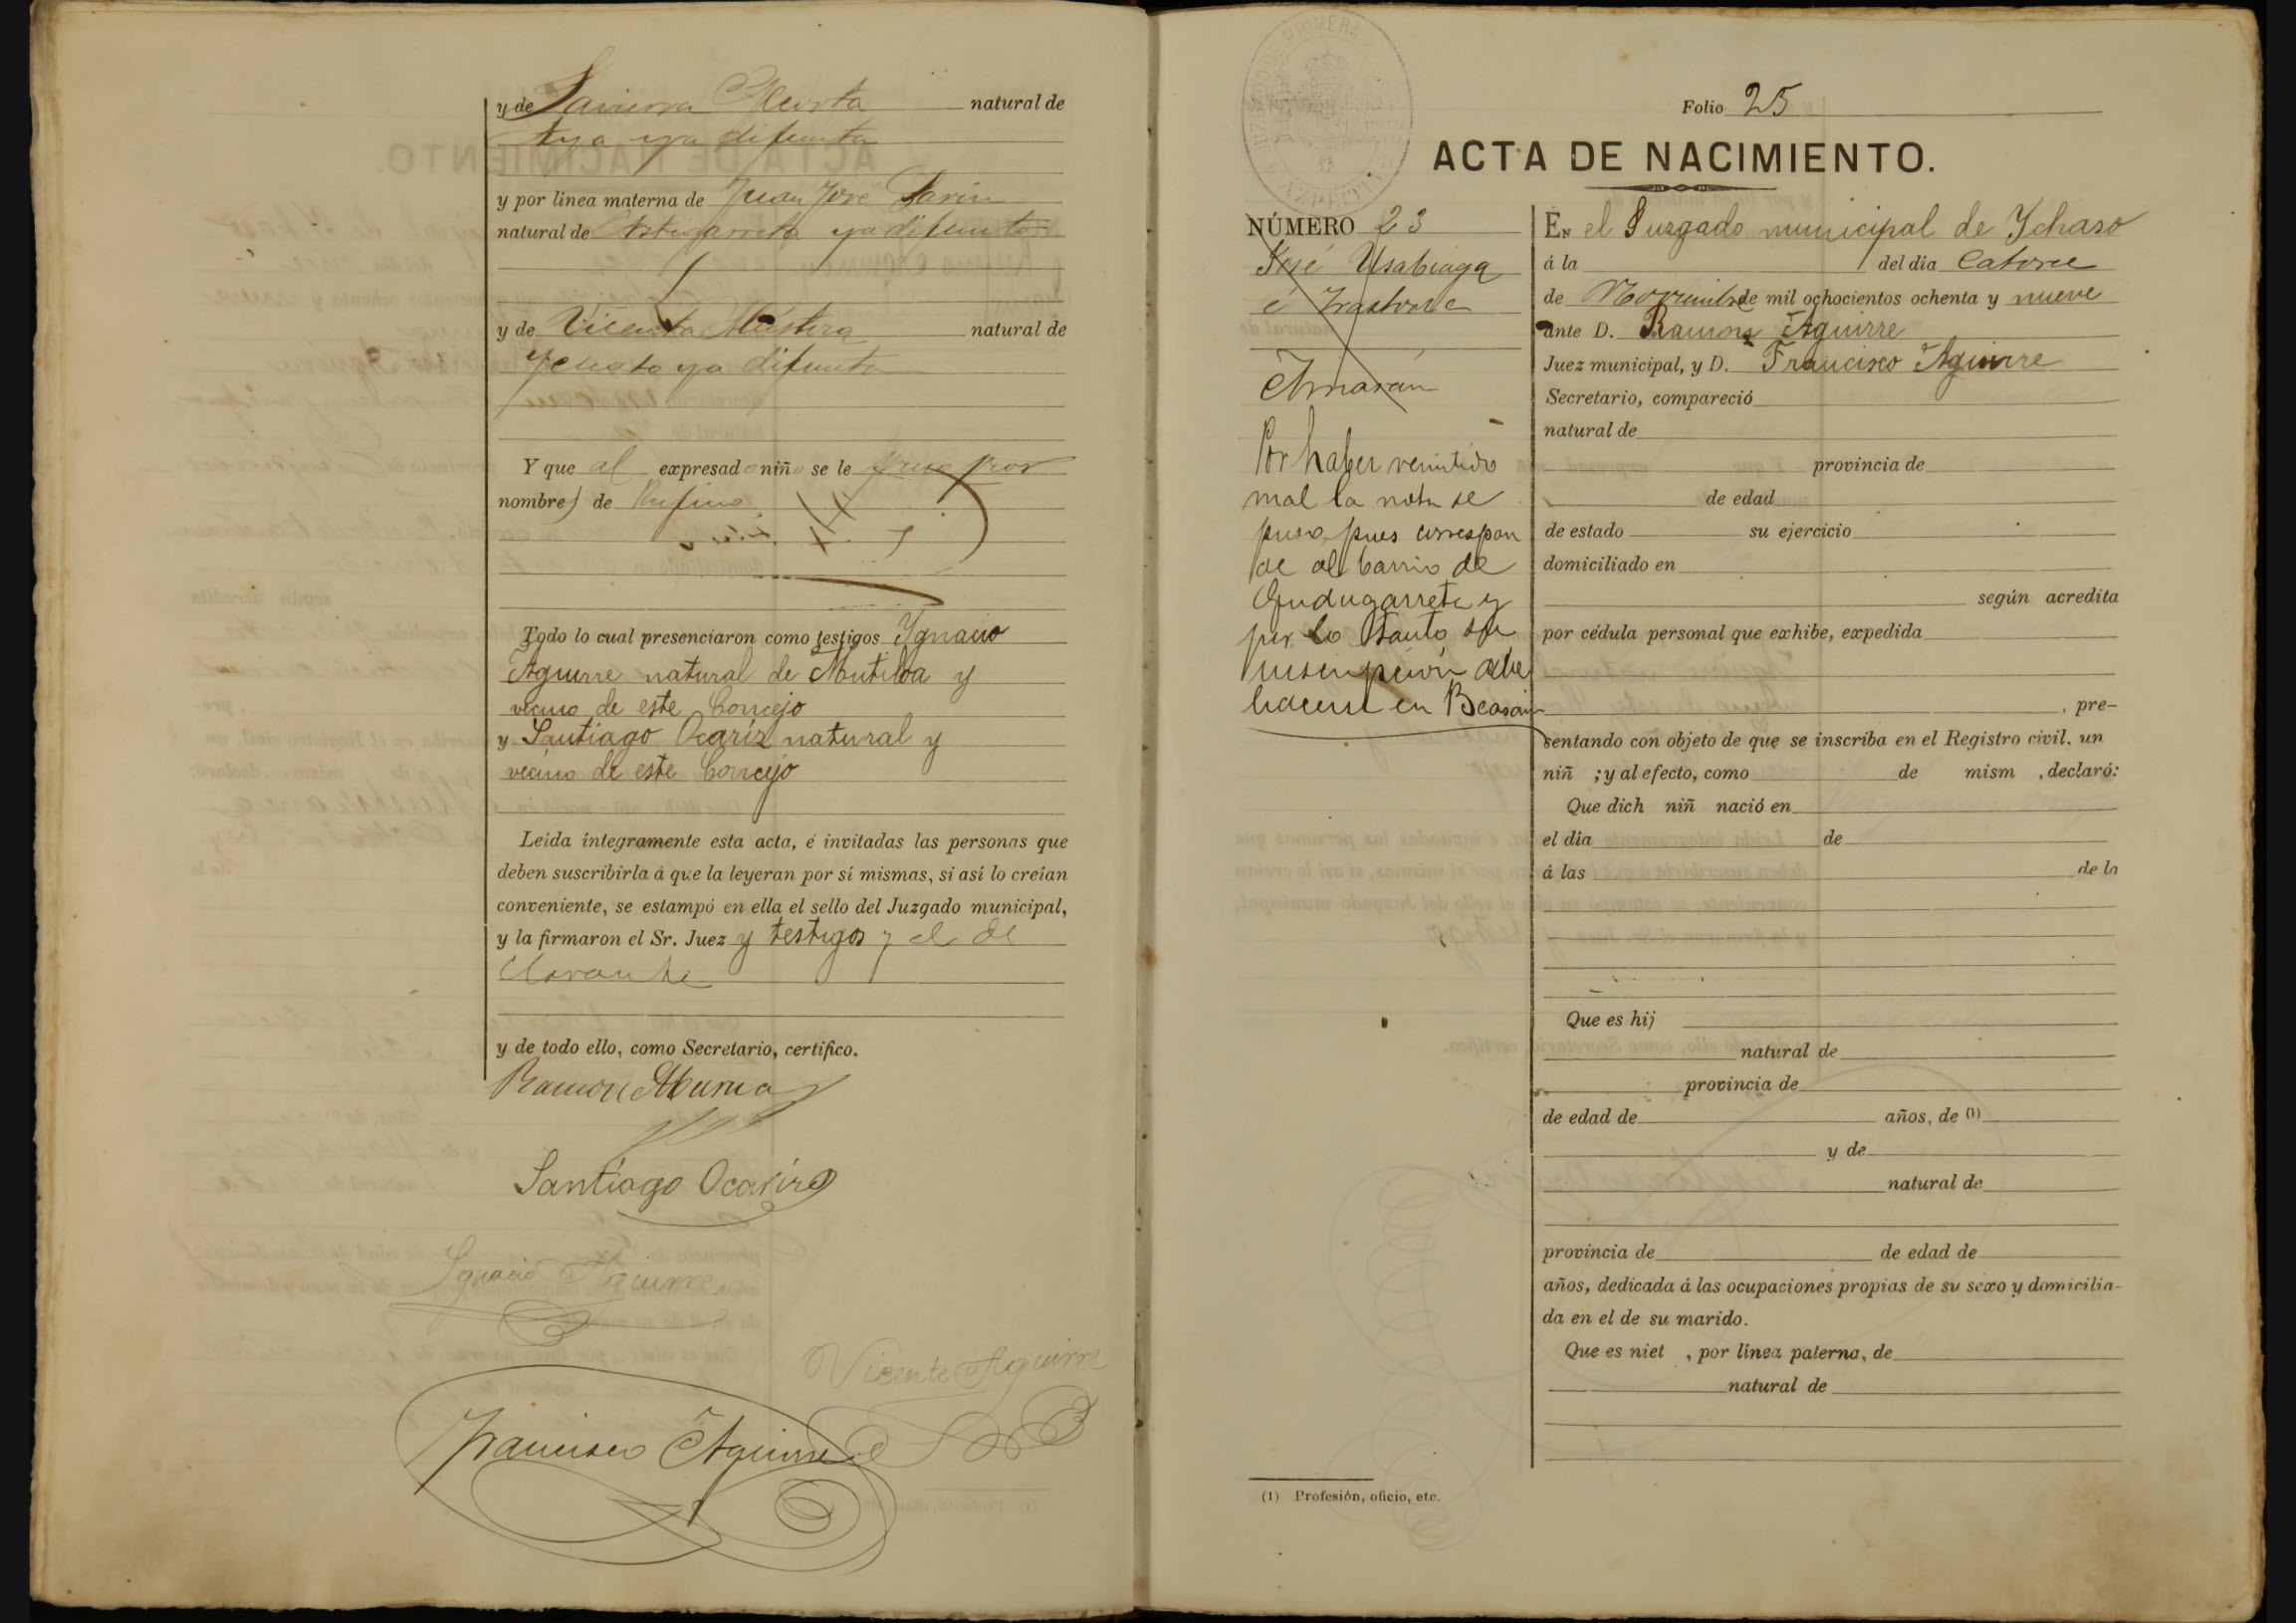 y de Javiera natural de
Aya ya difunta
y por línea materna de Juan José
natural de Astigarreta ya difunto
y de Vicenta natural de
Ychaso ya difunta
Y que al expresado niño se le puso por
nombre de Rufino
Todo lo cual presenciaron como testigos Ygnacio
Aguirre natural de Mutiloa y
vecino de este Concejo
y Santiago Ocariz natural y
vecino de este Concejo
Leída íntegramente esta acta, é invitadas las personas que
deben suscribirla á que la leyeran por sí mismas, si así lo creían
conveniente, se estampó en ella el sello del Juzgado municipal,
y la firmaron el Sr. Juez y testigos y el de
clarante
y de todo ello, como Secretario, certifico.
Ramon
Santiago Ocariz
Ygnacio Aguirre
Vicente Aguirre
Francisco Aguirre
Folio 25
ACTA DE NACIMIENTO.
NÚMERO 23
José Usabiaga
é
Por haber remitido
mal la nota se
puso, pues correspon
de al barrio de
Gudugarreta y
por lo tanto su
inscripción debe
hacerse en Beasain
EN el Juzgado municipal de Ychaso
á la del día Catorce
de Noviembre de mil ochocientos ochenta y nueve
ante D. Ramon Aguirre
Juez municipal, y D. Francisco Aguirre
Secretario, compareció
natural de
provincia de
de edad
de estado su ejercicio
domiciliado en
según acredita
por cédula personal que exhibe, expedida
, pre-
sentando con objeto de que se inscriba en el Registro civil, un
niñ ; y al efecto, como de mism , declaró:
Que dich niñ nació en
el día de
á las de la
Que es hij
natural de
provincia de
de edad de años, de (1)
y de
natural de
provincia de de edad de
años, dedicada á las ocupaciones propias de su sexo y domicilia-
da en el de su marido.
Que es niet , por línea paterna, de
natural de
(1) Profesión, oficio, etc.